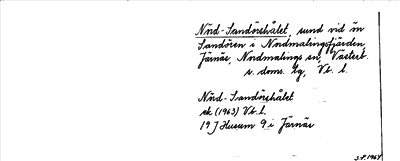 Nörd-Sandöreshålet, sund vid ön
Sandören i Nordmalingsfjärden,
Järnäs, Nordmalings sn, Västerb.
s. doms. lg, Vb. l.
Nörd-Sandöreshålet
ek (1963) Vb. l.
19 J Husum 9 i Järnäs
S.F. 1964